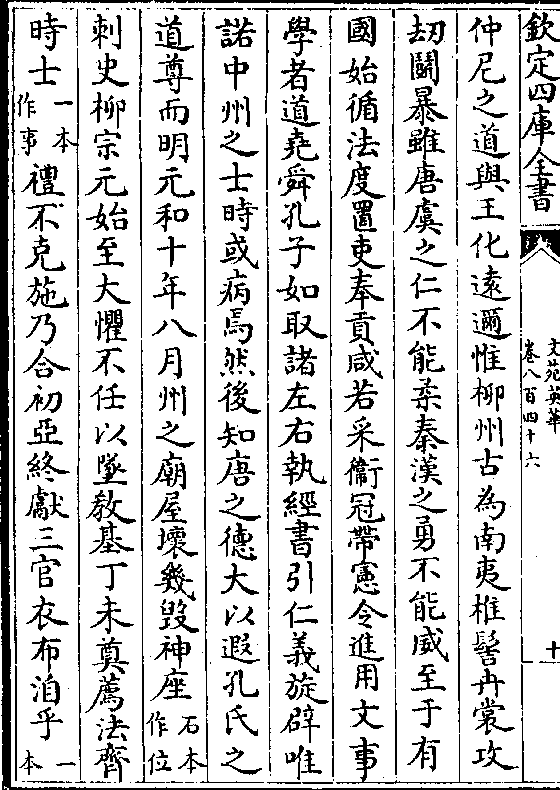 欽定四庫全書
文苑英華
卷八百四十六
十
仲尼之道與王化逺邇惟柳州古為南夷椎髻卉裳攻
刼鬭暴雖唐虞之仁不能柔秦漢之勇不能威至于有
國始循法度置吏奉貢咸若采衞冠帶憲令進用文事
學者道堯舜孔子如取諸左右執經書引仁義旋辟唯
諾中州之士時或病焉然後知唐之德大以遐孔氏之
道尊而明元和十年八月州之廟屋壞幾毁神座石本作位
刺史柳宗元始至大懼不任以墜教基丁未奠薦法齊
時士一本作事禮不克施乃合初亞終獻三官衣布洎乎一本